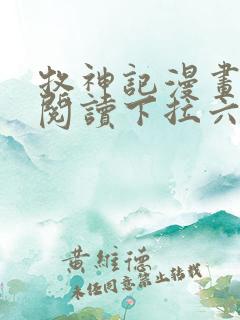 牧神記漫畫
閱讀下拉六
黃維德
未经同意禁止转载